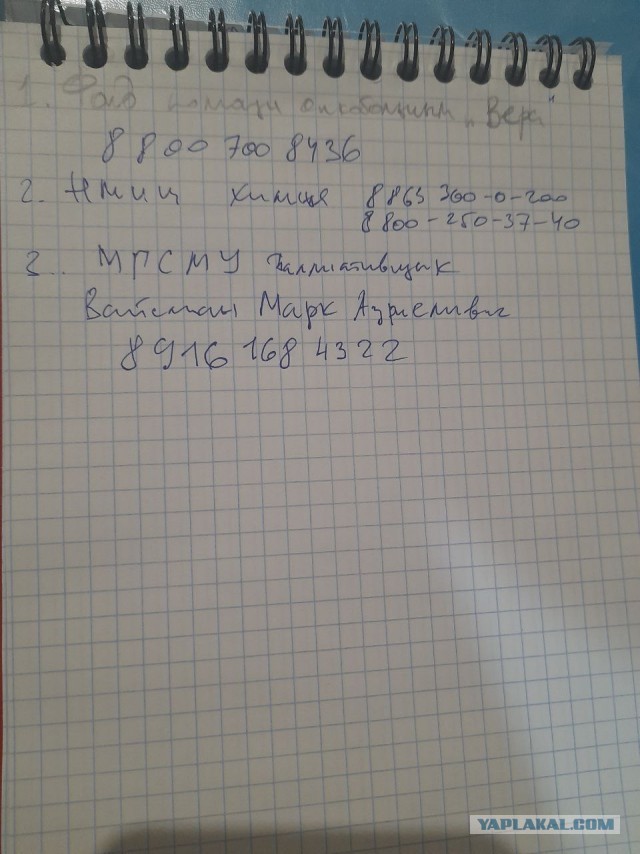 1. Фонд помощи онкобольным „Вера"
8 800 700 8436
2. НМИЦ химия 8 863 300-0-200
8 800-250-37-40
3.. МГСМУ Паллиативщик
Вайсман Марк Азриелевич
8 916 168 4322
YAPLAKAL.COM